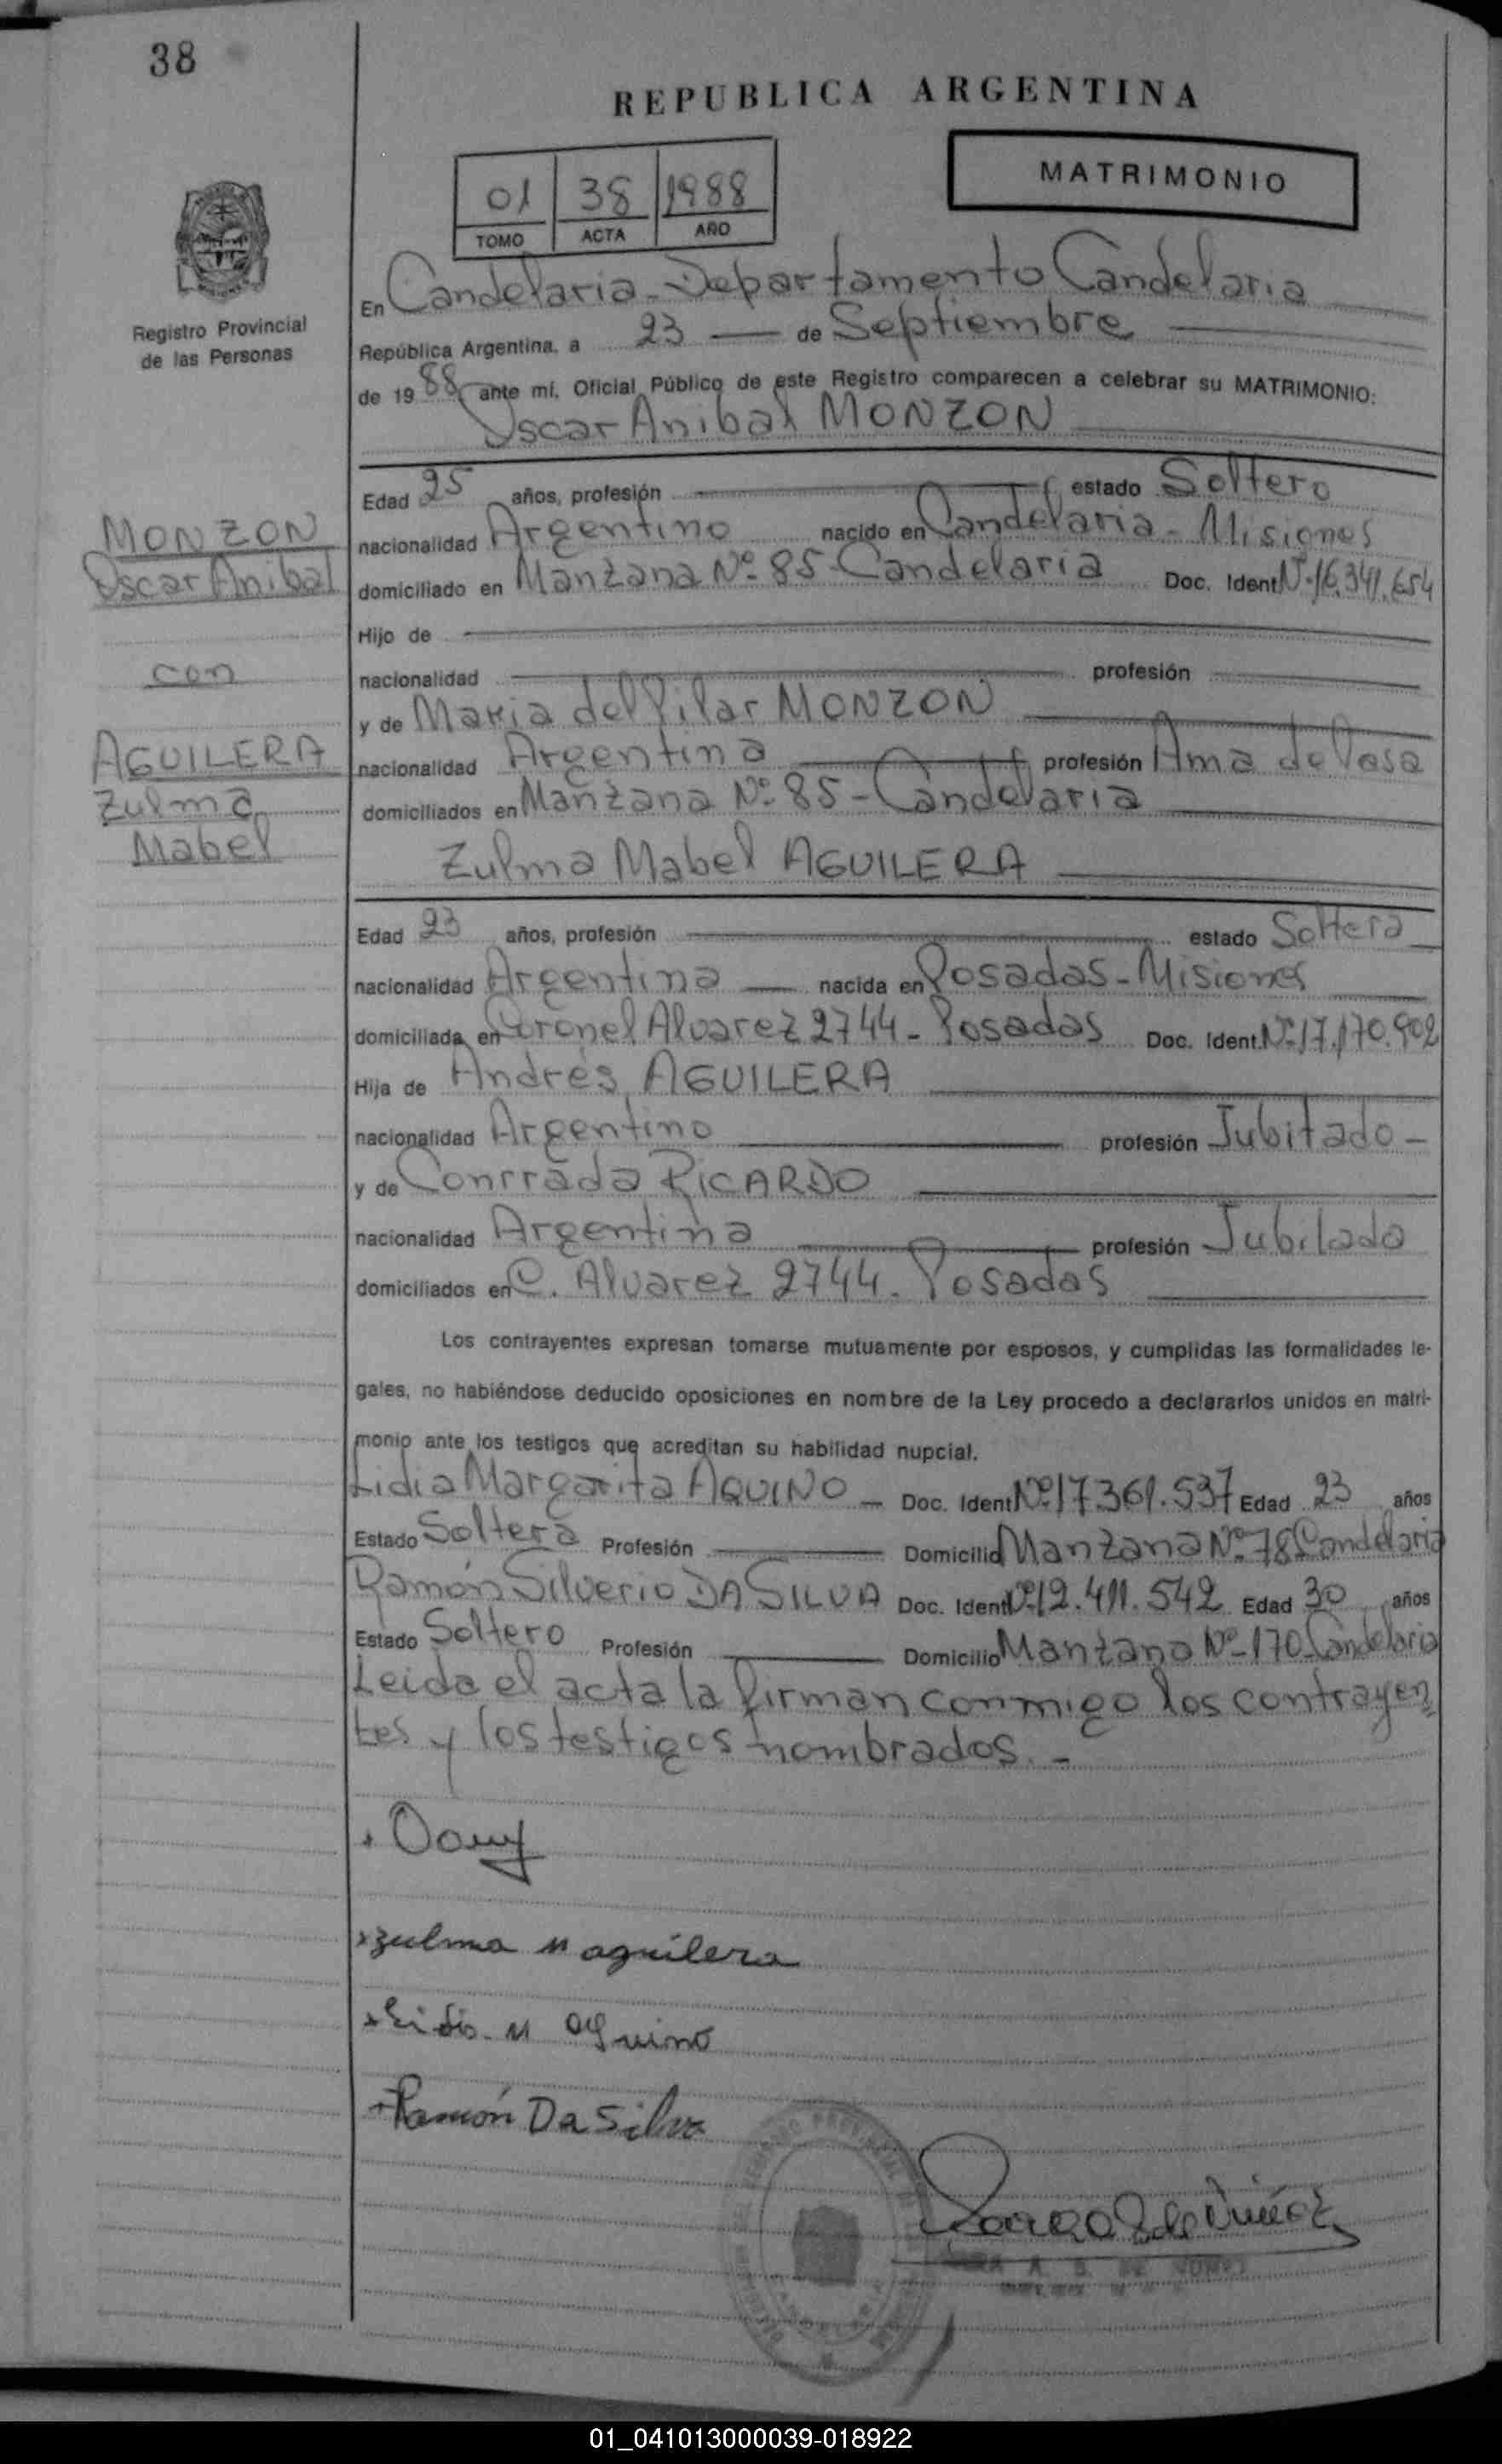 38
REPUBLICA ARGENTINA
MATRIMONIO
01 38 1988
TOMO ACTA AÑO
Registro Provincial
de las Personas
En Candelaria - Departamento Candelaria
República Argentina, a 23 — de Septiembre
de 19 88 ante mí, Oficial Público de este Registro comparecen a celebrar su MATRIMONIO:
Oscar Anibal MONZON
Edad 25 años, profesión estado Soltero
MONZON
nacionalidad Argentino nacido en Candelaria - Misiones
Oscar Anibal
domiciliado en Manzana Nº 85 - Candelaria Doc. Ident. Nº 16.341.654
Hijo de
con
nacionalidad profesión
y de Maria del Pilar MONZON
AGUILERA
nacionalidad Argentina profesión Ama de Casa
Zulma
domiciliados en Manzana Nº 85 - Candelaria
Mabel
Zulma Mabel AGUILERA
Edad 23 años, profesión estado Soltera
nacionalidad Argentina — nacida en Posadas - Misiones
domiciliada en Coronel Alvarez 2744 - Posadas Doc. Ident. Nº 17.170.902
Hija de Andrés AGUILERA
nacionalidad Argentino profesión Jubilado -
y de Conrrada RICARDO
nacionalidad Argentina profesión Jubilado
domiciliados en C. Alvarez 2744. Posadas
Los contrayentes expresan tomarse mutuamente por esposos, y cumplidas las formalidades le-
gales, no habiéndose deducido oposiciones en nombre de la Ley procedo a declararlos unidos en matri-
monio ante los testigos que acreditan su habilidad nupcial.
Lidia Margarita AQUINO - Doc. Ident. Nº 17 361.537 Edad 23 años
Estado Soltera Profesión Domicilio Manzana Nº 78 Candelaria
Ramón Silverio DA SILVA Doc. Ident. Nº 12.411.542 Edad 30 años
Estado Soltero Profesión Domicilio Manzana Nº 170 Candelaria
Leida el acta la firman conmigo los contrayen
tes y los testigos nombrados. -
Zulma M aguilera
Lidia M aquino
Ramón Da Silva
01_041013000039-018922